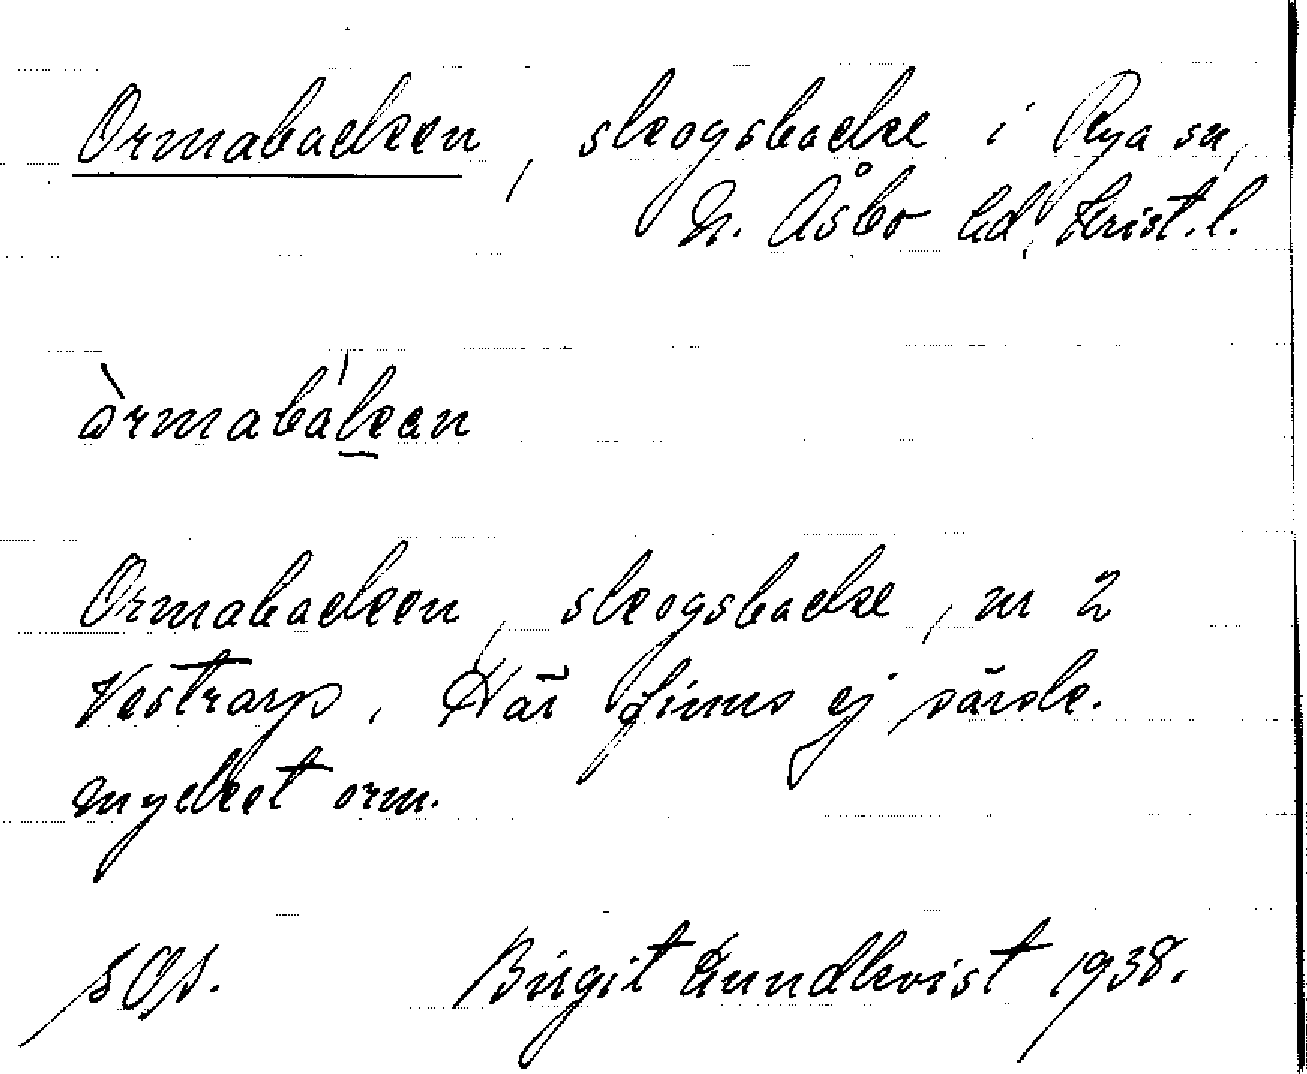 Ormabacken, skogsbacke i Rya sn,
N. Åsbo hd, Krist. l.
òrmabák̲an
Ormabacken, skogsbacke, nr 2
Vestrarp. Här finns ej särsk.
mycket orm.
Birgit Lundkvist 1938.